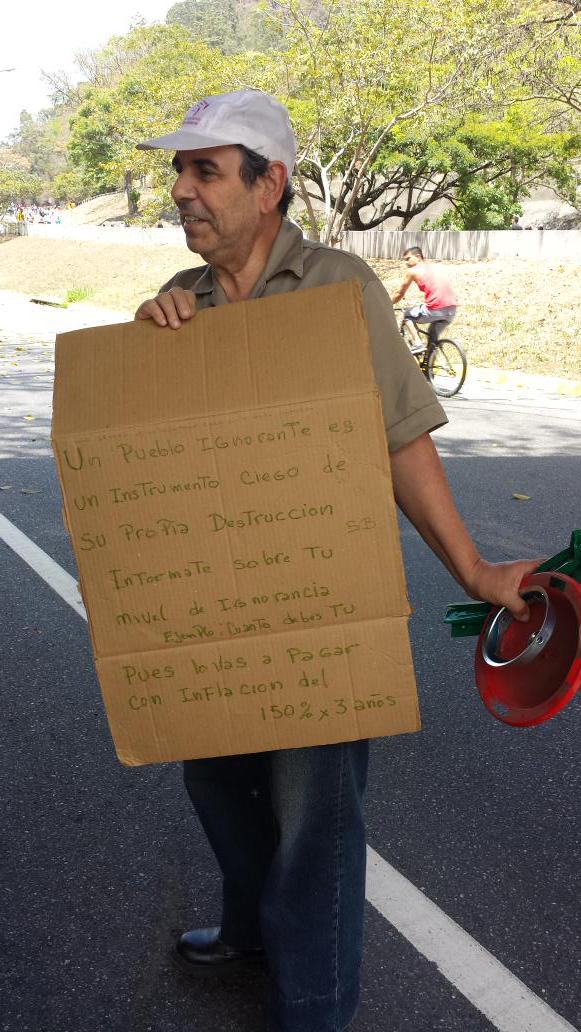 Un Pueblo IGnoranTe es
un InsTrumenTo Ciego de
Su ProPia DesTruccion
SB
InformaTe Sobre Tu
nivel de IGnorancia
Ejemplo: Cuanto debes Tu
Pues lo vas a PaGar
con InFlacion del
150% x 3 años